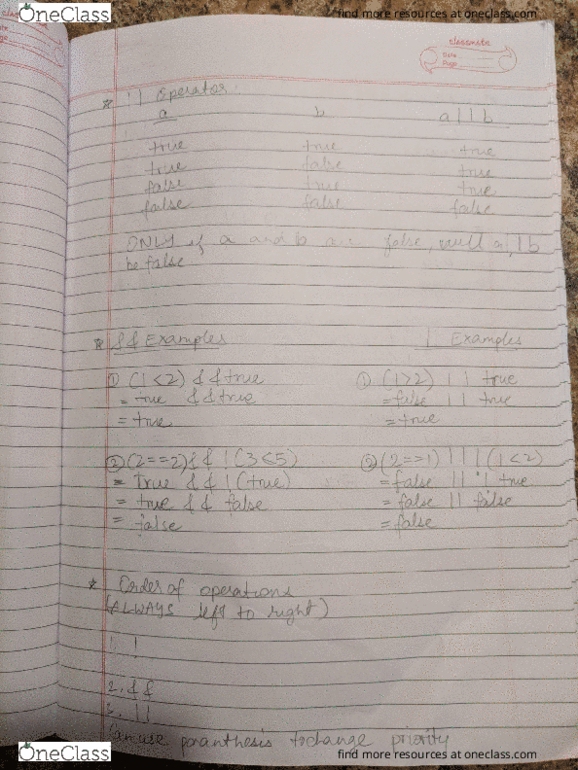 OneClass
find more resources at oneclass.com
classmate
Date
Page
* || Operator
a b a || b
true true true
true false true
false true true
false false false
ONLY if a and b are false, will a || b
be false
* && Examples || Examples
① (1<2) && true ① (1>2) || true
= true && true = false || true
= true = true
② (2==2) && !(3<5) ② (2==1) || !(1<2)
= true && !(true) = false || ! true
= true && false = false || false
= false = false
* Order of operations
(ALWAYS left to right)
1. !
2. &&
3. ||
Can use paranthesis to change priority
OneClass
find more resources at oneclass.com